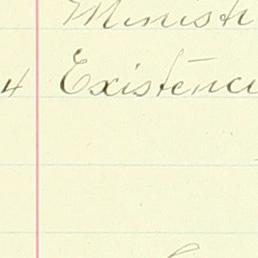 Minist
4 Existenc